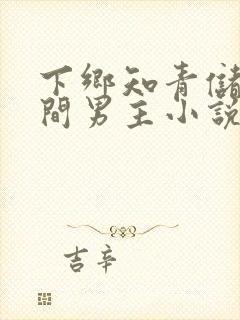 下鄉知青儲
間男主小說
吉辛